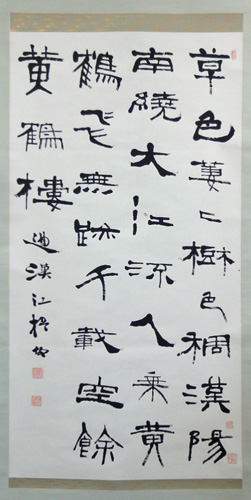 草色萋〻樹色稠漢陽
南繞大江流人乘黄
鶴飛無跡千載空餘
黄鶴樓
過漢江梧竹